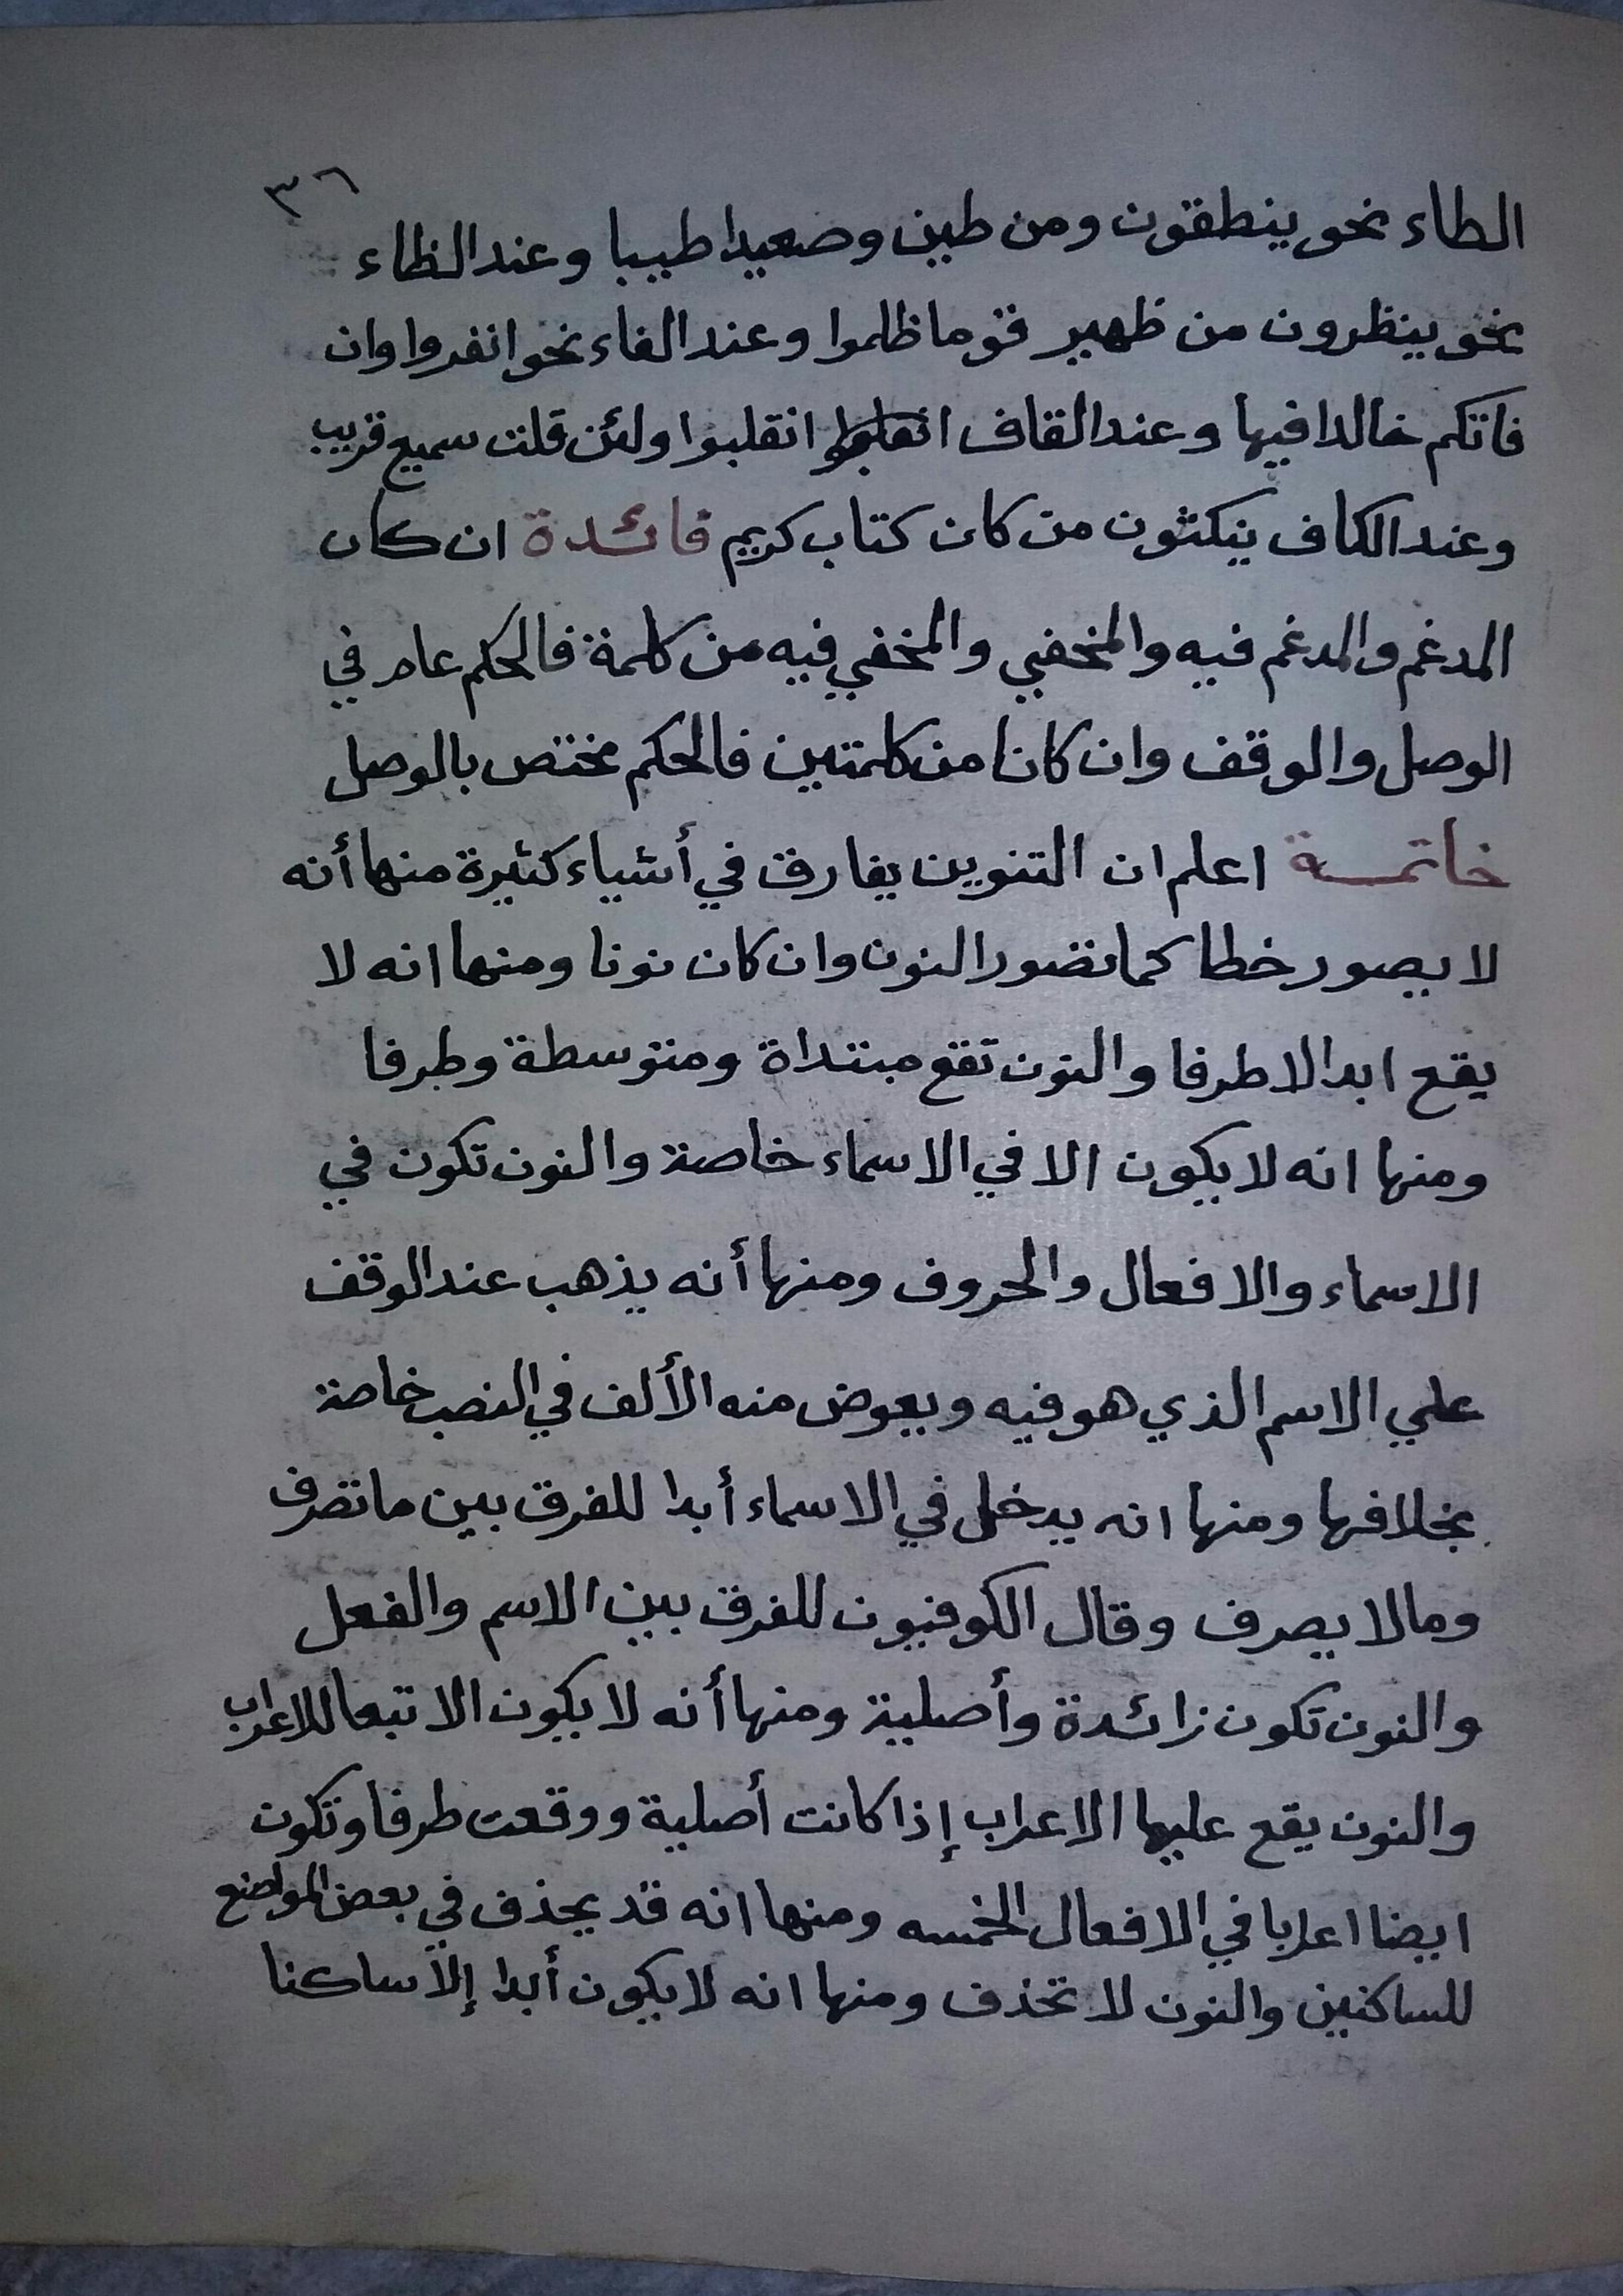 ٣٦
الطاء نحو ينطقون ومن طين وصعيدا طيبا وعند الظاء
نحو ينظرون من ظهير قوما ظلموا وعند الفاء نحو انفروا وان
فاتكم خالدا فيها وعند القاف انقلبوا ولئن قلت سميع قريب
وعند الكاف ينكثون من كان كتاب كريم فائدة ان كان
المدغم والمدغم فيه والمخفي والمخفي فيه من كلمة فالحكم عام في
الوصل والوقف وان كانا من كلمتين فالحكم مختص بالوصل
خاتمة اعلم ان التنوين يفارق في أشياء كثيرة منها أنه
لا يصور خطا كما تصور النون وان كان نونا ومنها انه لا
يقع ابدا الا طرفا والنون تقع مبتداة ومتوسطة وطرفا
ومنها انه لا يكون الا في الاسماء خاصة والنون تكون في
الاسماء والافعال والحروف ومنها أنه يذهب عند الوقف
علي الاسم الذي هو فيه ويعوض منه الألف في النصب خاصة
بخلافها ومنها انه يدخل في الاسماء أبدا للفرق بين ما تصرف
وما لا يصرف وقال الكوفيون للفرق بين الاسم والفعل
والنون تكون زائدة وأصلية ومنها أنه لا يكون الا تبعا للاعراب
والنون يقع عليها الاعراب إذا كانت أصلية ووقعت طرفا وتكون
ايضا اعرابا في الافعال الخمسه ومنها انه قد يحذف في بعض المواضع
للساكنين والنون لا تحذف ومنها انه لا يكون أبدا إلا ساكنا